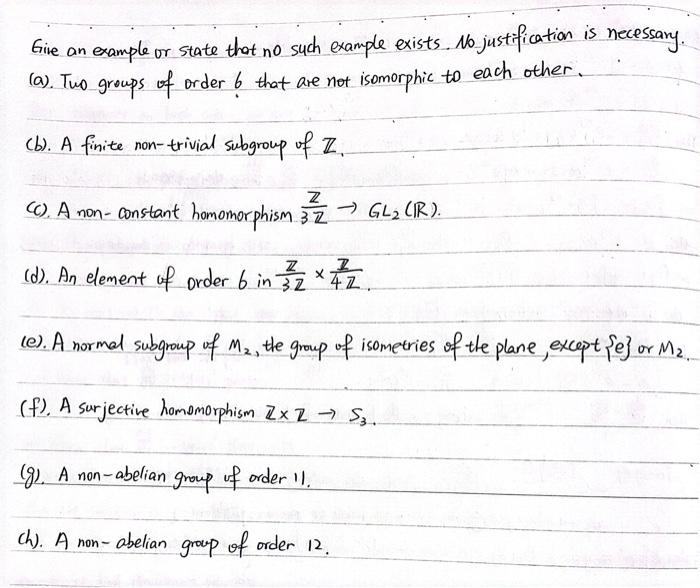 Give an example or state that no such example exists. No justification is necessary.
(a). Two groups of order 6 that are not isomorphic to each other.
(b). A finite non-trivial subgroup of ℤ.
(c). A non-constant homomorphism ℤ/3ℤ → GL₂(ℝ).
(d). An element of order 6 in ℤ/3ℤ × ℤ/4ℤ.
(e). A normal subgroup of M₂, the group of isometries of the plane, except {e} or M₂.
(f). A surjective homomorphism ℤ×ℤ → S₃.
(g). A non-abelian group of order 11.
(h). A non-abelian group of order 12.